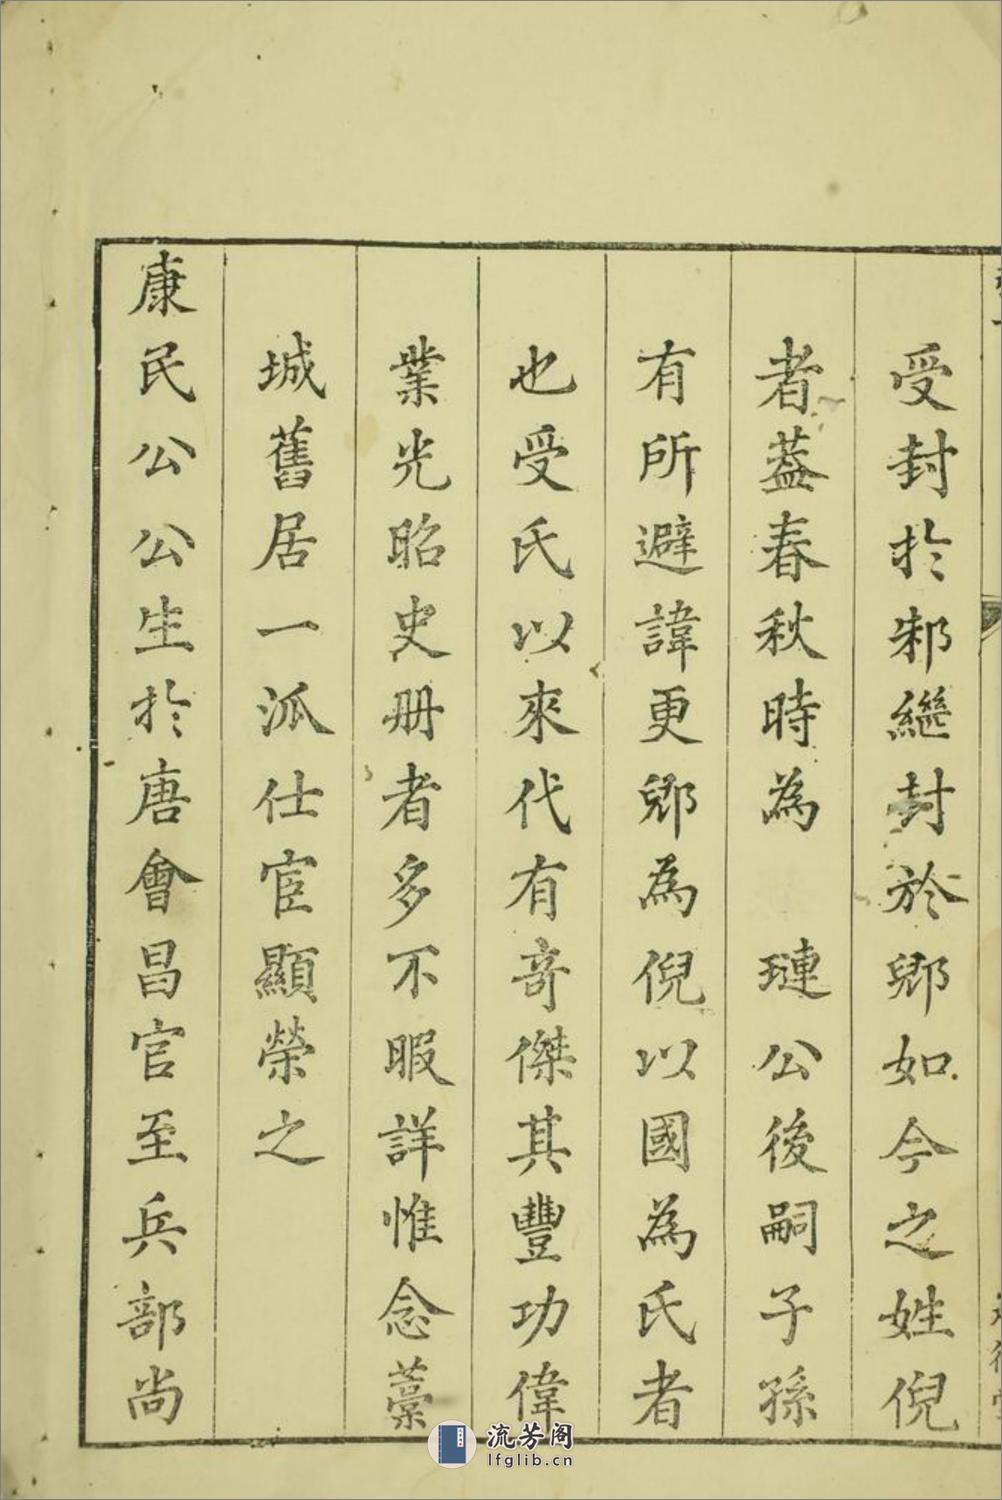 受封於邾繼封於郳如今之姓倪
者葢春秋時為　璉公後嗣子孫
有所避諱更郳為倪以國為氏者
也受氏以來代有奇傑其豐功偉
業光昭史册者多不暇詳惟念藁
城舊居一派仕宦顯榮之
康民公公生於唐會昌官至兵部尚
流芳阁
lfglib.cn